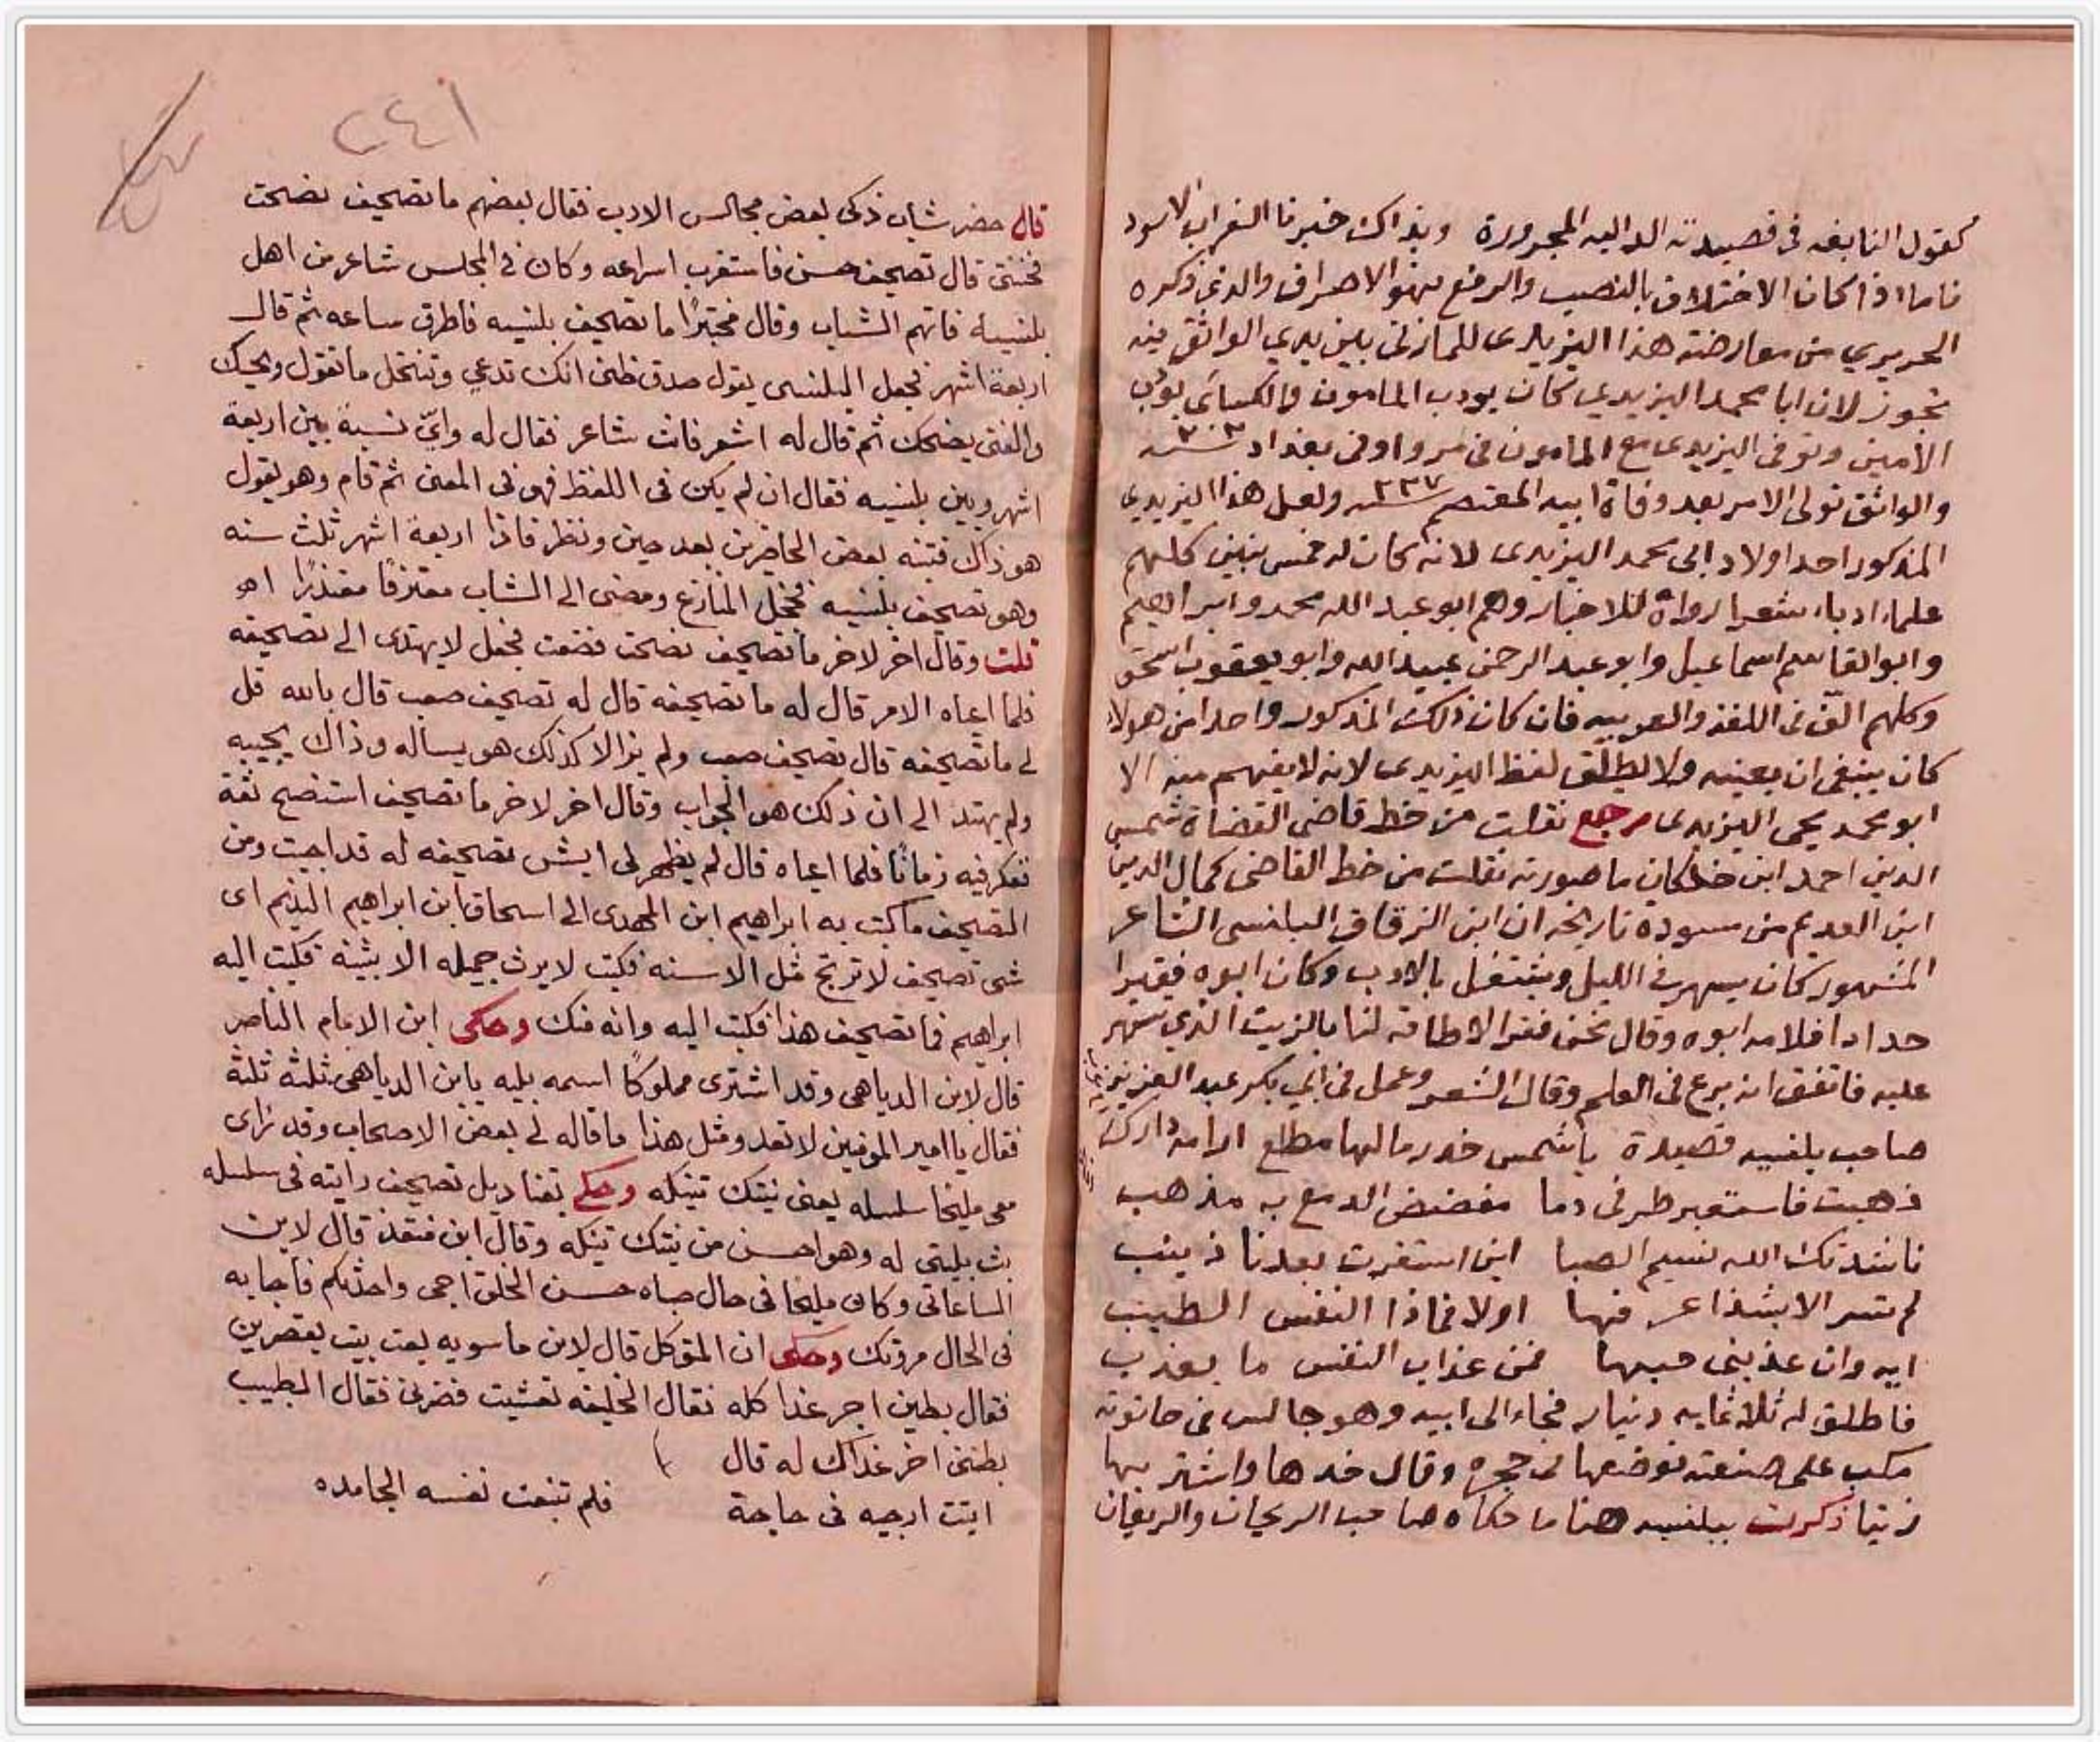 كقول النابغه فى قصيدته الداليه المجرورة وبذاك خبرنا الغراب الاسود
فاما اذا كان الاختلاف بالنصب والرفع فهو الاصراف والذى ذكره
الحريري من معارضته هذا اليزيدى للمازنى بين يدي الواثق فيه
تجوز لان ابا محمد اليزيدي كان يودب المامون والكسائى يودب
الامين وتوفى اليزيدى مع المامون فى مرو اوفى بغداد سنه ٢٠٢
والواثق تولى الامر بعد وفاة ابيه المعتصم سنه ٢٢٧ ولعل هذا اليزيدي
المذكور احد اولاد ابى محمد اليزيدى لانه كان له خمس بنين كلهم
علماء ادباء شعرا رواة للاخبار وهم ابو عبد الله محمد وابراهيم
وابو القاسم اسماعيل وابو عبد الرحمن عبيد الله وابو يعقوب اسحق
وكلهم الّف فى اللغة والعربيه فان كان ذلك المذكور واحدا من هولاء
كان ينبغى ان يعينه ولا يطلق لفظ اليزيدى لانه لا يفهم منه الا
ابو محمد يحيى اليزيدى رجع نقلت من خط قاضى القضاة شمس
الدين احمد ابن خلكان ما صورته نقلت من خط القاضى كمال الدين
ابن العديم من مسودة تاريخه ان ابن الزقاق البلنسى الشاعر
المشهور كان يسهر فى الليل ويشتغل بالادب وكان ابوه فقيرا
حدادا فلامه ابوه وقال نحن فقرا لا طاقة لنا بالزيت الذي تسهر
عليه فاتفق انه برع فى العلم وقال الشعر وعمل فى ابي بكر عبد العزيز
صاحب بلنسيه قصيدة ياشمس خدر مالها مطلع ارامة دارك
ذهبت فاستعبر طرفى دما مفضض الدمع به مذهب
ناشدتك الله نسيم الصبا اين استقرت بعدنا زينب
لم تسر الا بشذا عرفها اولا فماذا النفس الطيب
ايه وان عذبنى حبها فمن عذاب النفس ما يعذب
فاطلق له ثلاثمايه دينار فجاء الى ابيه وهو جالس فى حانوته
مكب على صنعته فوضعها فى حجره وقال خدها واشتر بها
زيتا ذكرت ببلنسيه هنا ما حكاه صاحب الريحان والريعان
٢٤١
قال حضر شاب ذكى بعض مجالس الادب فقال بعضهم ما تصحيف نصحت
فخنتنى قال تصحيف حسن فاستغرب اسراعه وكان فى المجلس شاعر من اهل
بلنسيه فاتهم الشاب وقال مختبرًا ما تصحيف بلنسيه فاطرق ساعه ثم قال
اربعة اشهر فجعل البلنسى يقول صدق ظنى انك تدعي وتنتحل ما تقول ويحك
والفتى يضحك ثم قال له اشعر فانت شاعر فقال له واىّ نسبة بين اربعة
اشهر وبين بلنسيه فقال ان لم يكن فى اللفظ فهو فى المعنى ثم قام وهو يقول
هو ذاك فتنبه بعض الحاضرين بعد حين ونظر فاذا اربعة اشهر ثلث سنه
وهو تصحيف بلنسيه فخجل المنازع ومضى الى الشاب معترفًا معتذرًا اھ
قلت وقال اخر لاخر ما تصحيف نصحت فضعت فجعل لا يهتدى الى تصحيفه
فلما اعياه الامر قال له ما تصحيفه قال له تصحيف صعب قال بالله قل
لى ما تصحيفه قال تصحيف صعب ولم يزالا كذلك هو يساله وذاك يجيبه
ولم يهتد الى ان ذلك هو الجواب وقال اخر لاخر ما تصحيف استنصح ثقة
تفكر فيه زمانًا فلما اعياه قال لم يظهر لى ايش تصحيفه له قد اجبت ومن
التصحيف ما كتب به ابراهيم ابن المهدى الى اسحاق ابن ابراهيم النديم اى
شى تصحيف لا ترتج مثل الاسنه فكتب لا يرث جميله الا بثينه فكتب اليه
ابراهيم فما تصحيف هذا فكتب اليه وانه منك وحكى ابن الامام الناصر
قال لابن الدباهى وقد اشترى مملوكًا اسمه بليه يابن الدباهى ثلثة ثلثة
فقال يا امير المومنين لا تعد ومثل هذا ما قاله لى بعض الاصحاب وقد راى
معى مليحا سلسله يعنى نيتك تنيكه وحكى تفناديل تصحيف رايته فى سلسله
بث بليتى له وهو احسن من نيتك تنيكه وقال ابن منقذ قال لابن
الساعاتى وكان مليحا فى حال صباه حسن الخلق اجى واحدثكم فاجابه
فى الحال مروتك وحكى ان المتوكل قال لابن ماسويه بعت بيتى بقصرين
فقال بطين اجر غدا كله فقال الخليفه تعشيت فضرنى فقال الطبيب
بطننى اخر غداك له قال
اتيت ارجيه فى حاجة فلم تنبعث نفسه الجامده